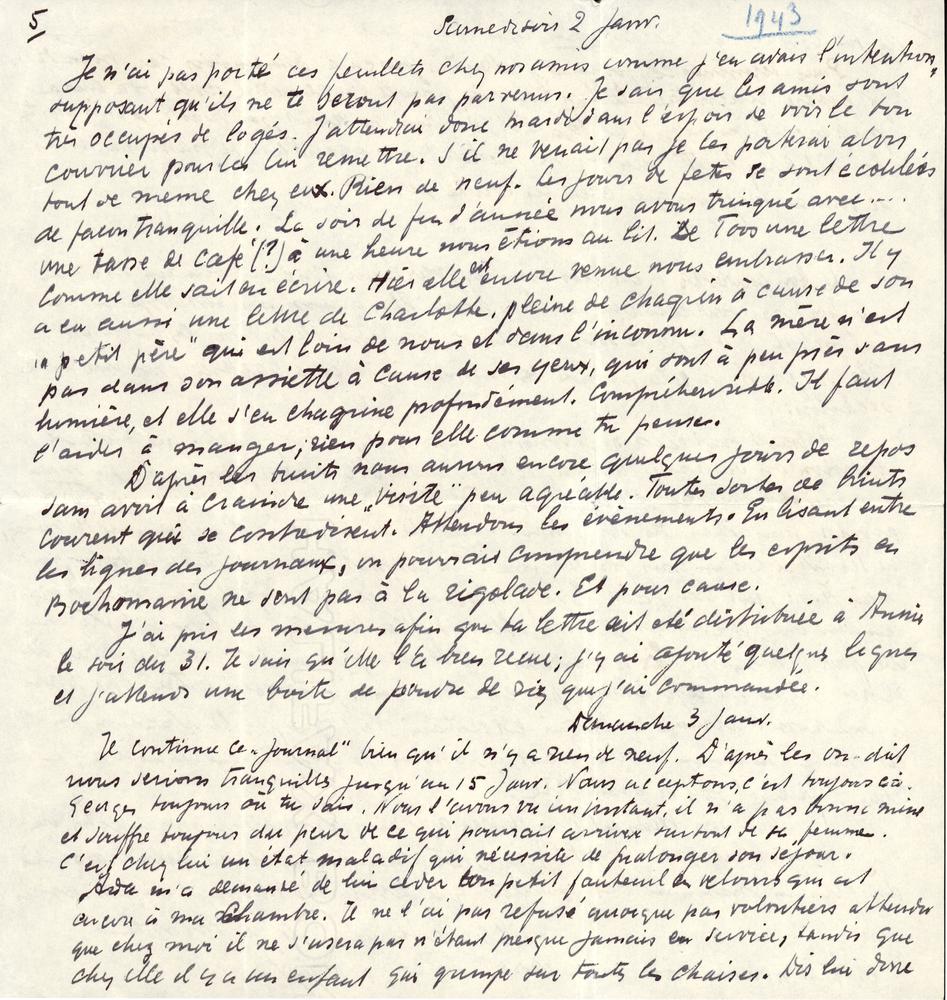 5
Samedi soir 2 Janv.
1943
Je n'ai pas porté ces feuillets chez nos amis comme j'en avais l'intention,
supposant qu'ils ne te seront pas parvenus. Je sais que les amis sont
très occupés de logés. J'attendrai donc mardi dans l'espoir de voir le bon
courrier pour les lui remettre. S'il ne venait pas je les porterai alors
tout de même chez eux. Rien de neuf. Les jours de fêtes se sont écoulées
de façon tranquille. Le soir de fin d'année nous avons trinqué avec....
une tasse de café (?) à une heure nous étions au lit. De Toos une lettre
comme elle sait en écrire. Hier elle est encore venue nous embrasser. Il y
a eu aussi une lettre de Charlotte, pleine de chagrin à cause de son
"petit père" qui est loin de nous et dans l'inconnu. La mère n'est
pas dans son assiette à cause de ses yeux, qui sont à peu près sans
lumière, et elle s'en chagrine profondément. Compréhensible. Il faut
l'aider à manger, rien pour elle comme tu penses.
D'après les bruits nous aurons encore quelques jours de repos
sans avoir à craindre une "visite" peu agréable. Toutes sortes de bruits
courent qui se contredisent. Attendons les évènements. En lisant entre
les lignes des journaux, on pourrait comprendre que les esprits en
Bochomanie ne sont pas à la rigolade. Et pour cause.
J'ai pris les mesures afin que ta lettre ait été distribuée à Annie
le soir du 31. Je sais qu'elle l'a bien reçue; j'y ai ajouté quelques lignes
et j'attends une boite de poudre de riz que j'ai commandée.
Dimanche 3 Janv.
Je continue ce "journal" bien qu'il n'y a rien de neuf. D'après les on-dit
nous serions tranquilles jusqu'au 15 Janv. Nous acceptons, c'est toujours ça.
Georges toujours où tu sais. Nous l'avons vu un instant, il n'a pas bonne mine
et souffre toujours du peur de ce qui pourrait arriver surtout de sa femme.
C'est chez lui un état maladif qui nécessite de prolonger son séjour.
Aida m'a demandé de lui céder ton petit fauteuil en velours qui est
encore à ma chambre. Je ne l'ai pas refusé quoique pas volontiers attendu
que chez moi il ne s'usera pas n'étant presque jamais en service, tandis que
chez elle il y a un enfant qui grimpe sur toutes les chaises. Dis lui donc